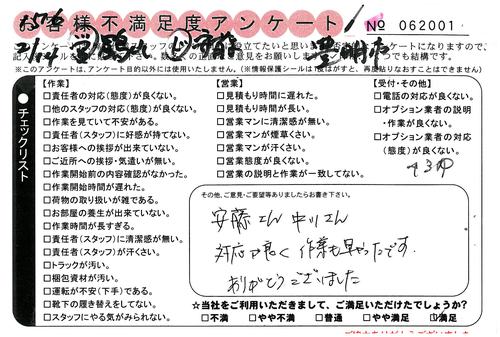 お客様不満足度アンケート
No 062001
2/14
豊明市
アンケート
※このアンケートは、アンケート目的以外には使用いたしません。(※情報保護シールは1度はがすと、再度貼りなおすことはできません)
チェックリスト
【作業】
□責任者の対応(態度)が良くない。
□他のスタッフの対応(態度)が良くない。
□作業を見ていて不安がある。
□責任者(スタッフ)に好感が持てない。
□お客様への挨拶が出来ていない。
□ご近所への挨拶・気遣いが無い。
□作業開始前の内容確認がなかった。
□作業開始時間が遅れた。
□荷物の取り扱いが雑である。
□お部屋の養生が出来ていない。
□作業時間が長すぎる。
□責任者(スタッフ)に清潔感が無い。
□責任者(スタッフ)が汗くさい。
□トラックが汚い。
□梱包資材が汚い。
□運転が不安(下手)である。
□靴下の履き替えをしてない。
□スタッフにやる気がみられない。
【営業】
□見積もり時間に遅れた。
□見積もり時間が長い。
□営業マンに清潔感が無い。
□営業マンが煙草くさい。
□営業マンが汗くさい。
□営業態度が良くない。
□営業の説明と作業が一致してない。
【受付・その他】
□電話の対応が良くない。
□オプション業者の説明
・作業が良くない。
□オプション業者の対応
(態度)が良くない。
その他、ご意見・ご要望等ありましたらお書き下さい。
安藤さん 中川さん
対応が良く 作業も早かったです。
ありがとうございました
☆当社をご利用いただきまして、ご満足いただけたでしょうか?
□不満 □やや不満 □普通 □やや満足 □満足